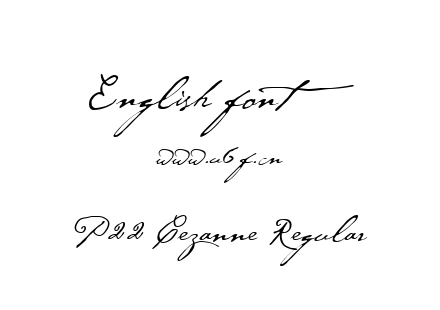 English font
www.u6f.cn
P22 Cezanne Regular